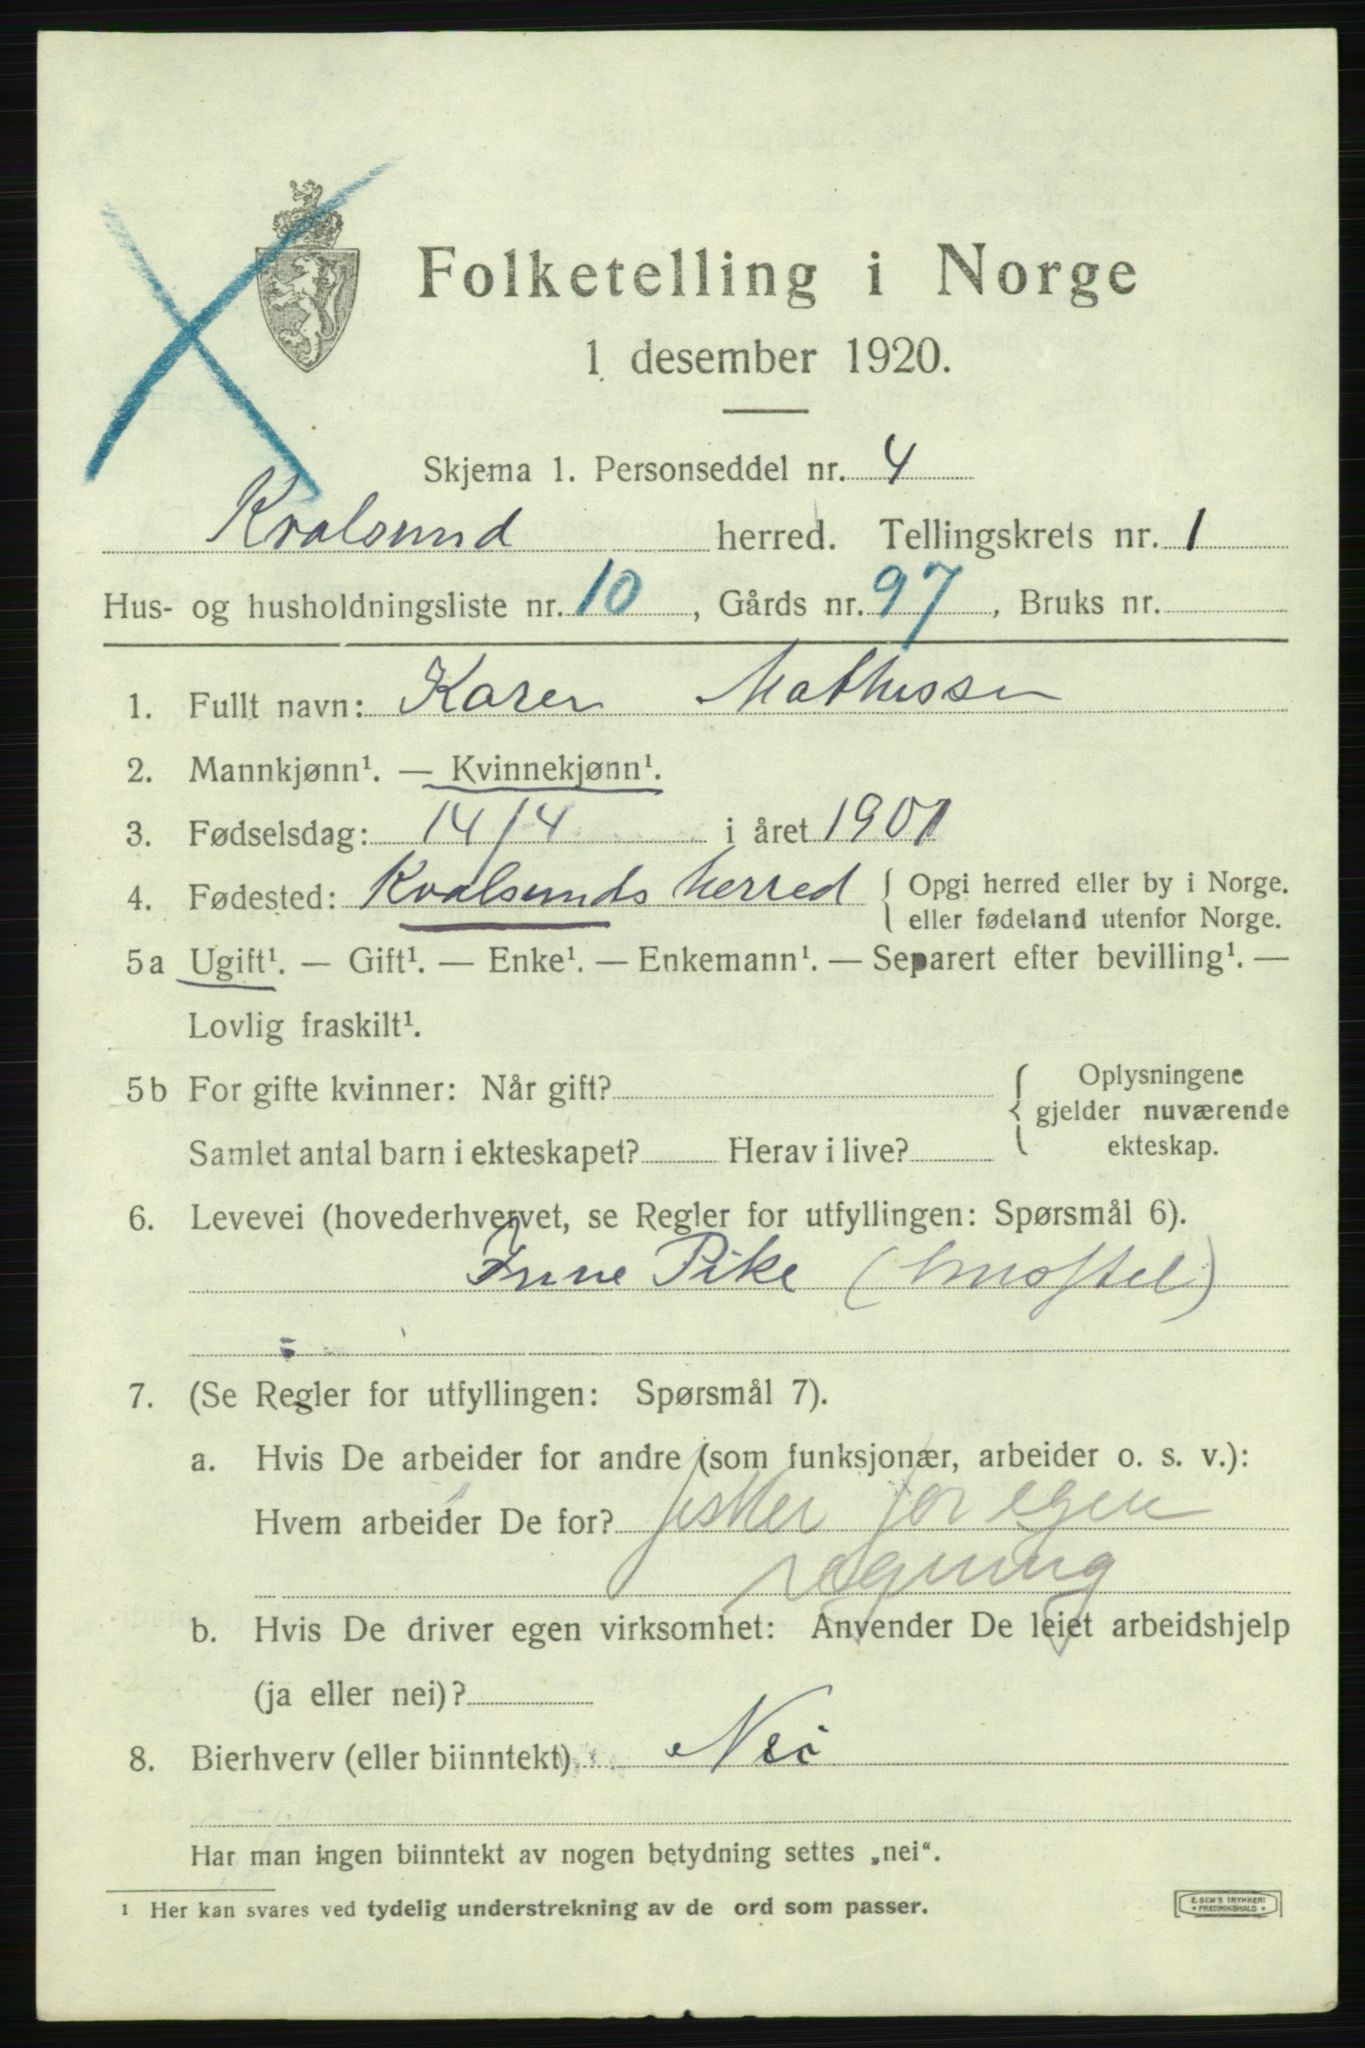 Folketelling i Norge
1 desember 1920.
Skjema 1. Personseddel nr. 4
Kvalsund herred. Tellingskrets nr. 1
Hus- og husholdningsliste nr. 10, Gårds nr. 97, Bruks nr.
1. Fullt navn: Karen Mathissen
2. Mannkjønn¹. — Kvinnekjønn¹.
3. Fødselsdag: 14/4 i året 1901
4. Fødested: Kvalsunds herred { Opgi herred eller by i Norge.
eller fødeland utenfor Norge.
5a Ugift¹. — Gift¹. — Enke¹. — Enkemann¹. — Separert efter bevilling¹. —
Lovlig fraskilt¹.
5b For gifte kvinner: Når gift? { Oplysningene
gjelder nuværende
ekteskap.
Samlet antal barn i ekteskapet? Herav i live?
6. Levevei (hovederhvervet, se Regler for utfyllingen: Spørsmål 6).
Inne Pike (husstel)
7. (Se Regler for utfyllingen: Spørsmål 7).
a. Hvis De arbeider for andre (som funksjonær, arbeider o. s. v.):
Hvem arbeider De for? fisker for egen
regning
b. Hvis De driver egen virksomhet: Anvender De leiet arbeidshjelp
(ja eller nei)?
8. Bierhverv (eller biinntekt) Nei
Har man ingen biinntekt av nogen betydning settes „nei“.
¹ Her kan svares ved tydelig understrekning av de ord som passer.
E. SEM'S TRYKKERI
• FREDRIKSHALD •